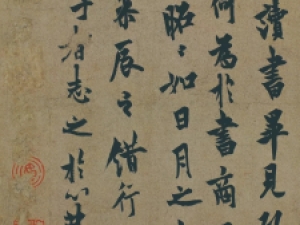 讀書畢見
何為於書商
昭〻如日月之
辰之錯行
于商志之於心